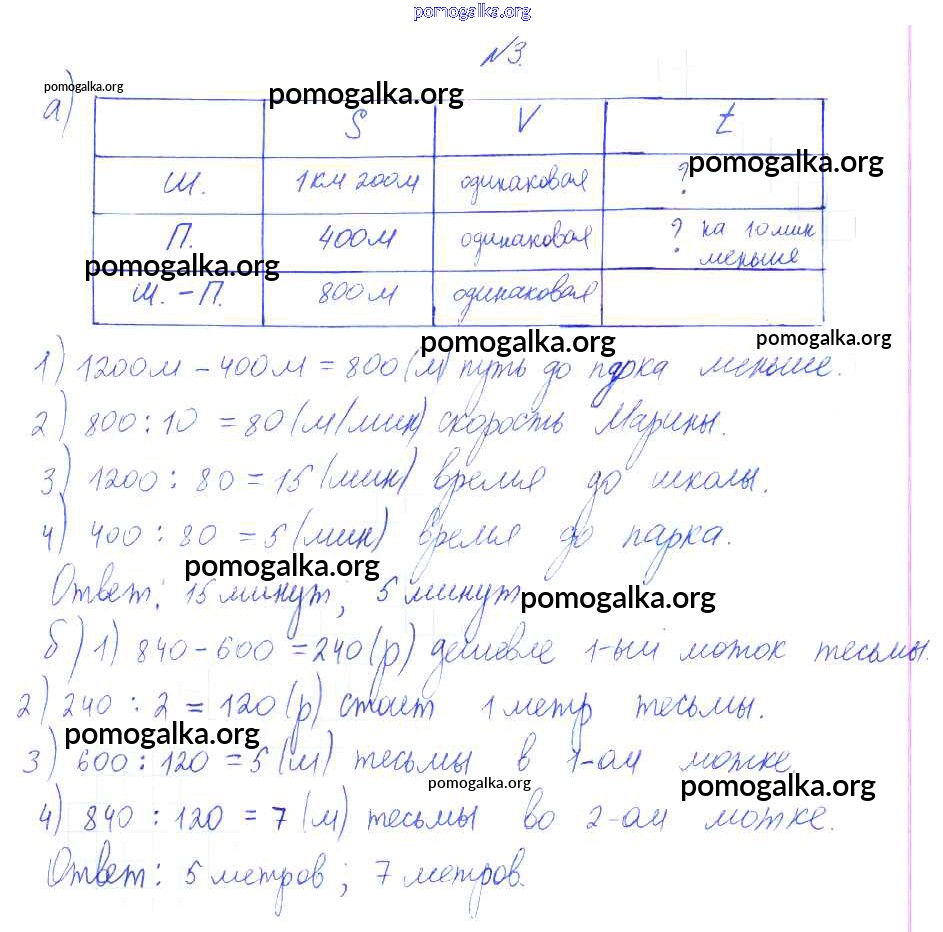 pomogalka.org
№3.
pomogalka.org
а)
pomogalka.org
S V t
pomogalka.org
Ш. 1км 200м одинаковая ?
П. 400м одинаковая ? на 10мин меньше
pomogalka.org
Ш. – П. 800м одинаковая
pomogalka.org
pomogalka.org
1) 1200м – 400м = 800 (м) путь до парка меньше.
2) 800 : 10 = 80 (м/мин) скорость Марины.
3) 1200 : 80 = 15 (мин) время до школы.
4) 400 : 80 = 5 (мин) время до парка.
pomogalka.org
Ответ: 15 минут; 5 минут
pomogalka.org
б) 1) 840 – 600 = 240 (р) дешевле 1-ый моток тесьмы.
2) 240 : 2 = 120 (р) стоит 1 метр тесьмы.
pomogalka.org
3) 600 : 120 = 5 (м) тесьмы в 1-ом мотке
pomogalka.org
pomogalka.org
4) 840 : 120 = 7 (м) тесьмы во 2-ом мотке.
Ответ: 5 метров; 7 метров.